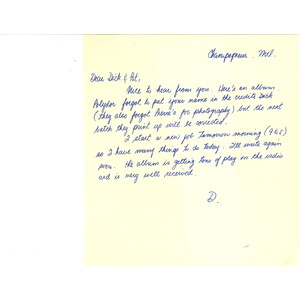 Dear Dick & Pat,
Nice to hear from you. Here's an album.
Polydor forgot to put your name in the credits Dick
(they also forgot for photography) but the next
batch they print up will be corrected.
I start a new job tomorrow morning (9 to 5)
so I have many things to do today. I'll write again
soon. The album is getting tons of play on the radio
and is very well received.
D.